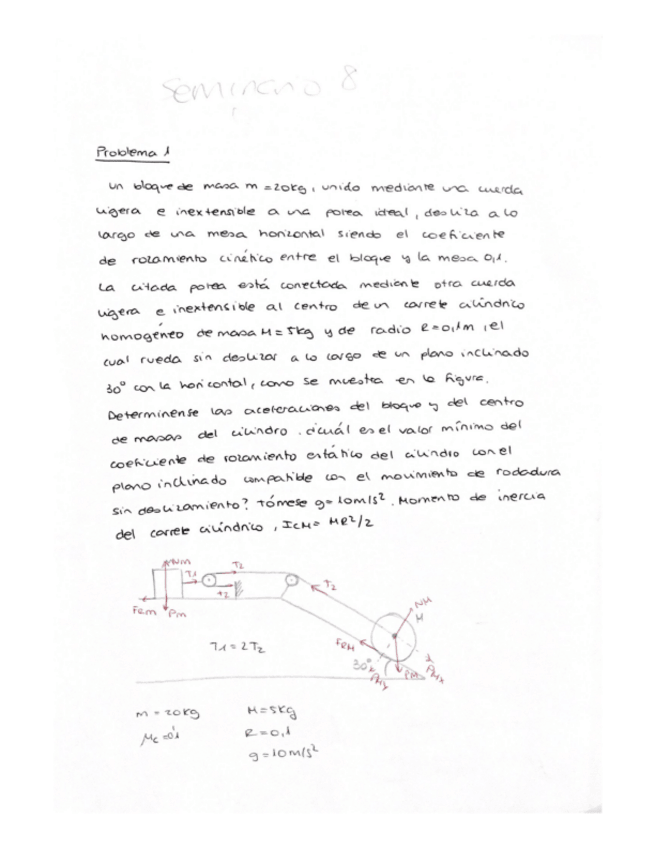 Seminario 8
Problema 1
Un bloque de masa m = 20kg, unido mediante una cuerda
ligera e inextensible a una polea ideal, desliza a lo
largo de una mesa horizontal siendo el coeficiente
de rozamiento cinético entre el bloque y la mesa 0,1.
La citada polea está conectada mediante otra cuerda
ligera e inextensible al centro de un carrete cilíndrico
homogéneo de masa M = 5kg y de radio R = 0,1m, el
cual rueda sin deslizar a lo largo de un plano inclinado
30° con la horizontal, como se muestra en la figura.
Determínense las aceleraciones del bloque y del centro
de masas del cilindro. ¿cuál es el valor mínimo del
coeficiente de rozamiento estático del cilindro con el
plano inclinado compatible con el movimiento de rodadura
sin deslizamiento? Tómese g = 10m/s². Momento de inercia
del carrete cilíndrico, ICM = MR²/2
NM
T1
T2
T2
T2
FRM
PM
NM
M
FRM
30°
PM
T1 = 2T2
m = 20kg
M = 5kg
μc = 0'1
R = 0,1
g = 10m/s²